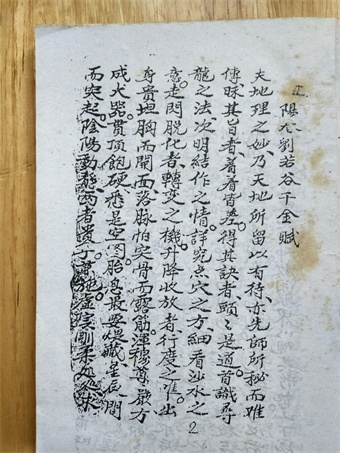 江陽九劉若谷千金賦
夫地理之妙乃天地所留以有待亦先師所秘而难
傳昧其旨者着着皆差得其訣者頭々是道首識尋
龍之法次明結作之情詳究点穴之方細看沙水之
意走閃脱化者轉变之機升降收放者行度之准出
身贵坦胸而開面落脉怕突骨而露筋渾穆尊嚴方
成大器贯顶飽硬 是空 胎息最要媛藏星辰間
而突起陰陽動 两者贵乎 虚 剛柔
2